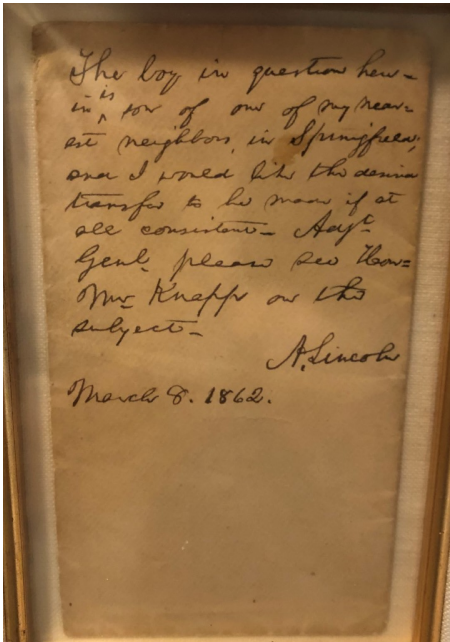 The boy in question here-
in is son of one of my near-
est neighbors, in Springfield,
and I would like the desired
transfer to be made if at
all consistent– Adjt
Genl. please see Hon-
Mr. Knapp on the
subject–
A. Lincoln
March 8. 1862.